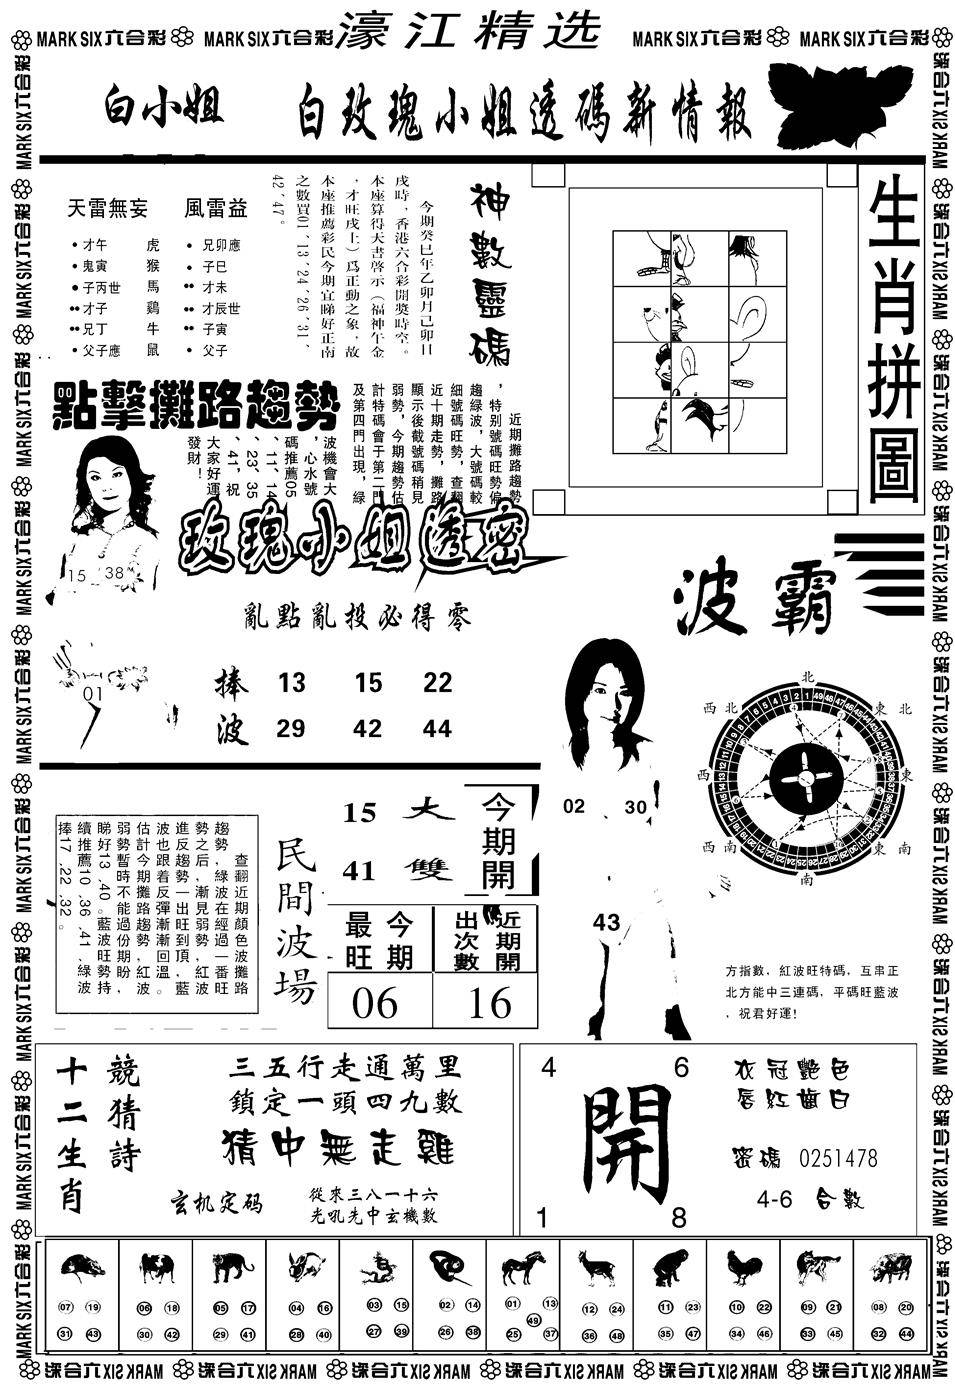 濠江精选
MARK SIX六合彩 MARK SIX六合彩 MARK SIX六合彩 MARK SIX六合彩
白小姐 白玫瑰小姐透碼新情報
天雷無妄 風雷益
•才午 虎 •兄卯應
•鬼寅 猴 •子巳
•子丙世 馬 ••才未
••才子 鷄 ••才辰世
••兄丁 牛 ••子寅
•父子應 鼠 •父子
神數靈碼
今期癸巳年乙卯月己卯日
戌時，香港六合彩開獎時空。
本座算得天書啓示（福神午金
，才旺戌上）爲正動之象，故
本座推薦彩民今期宜睇好正南
之數買01、13、24、26、31、
42、47。
生肖拼圖
點擊攤路趨勢
近期攤路趨勢
，特别號碼旺勢偏
趨緑波，大號碼較
細號碼旺勢，查翻
近十期走勢，攤路
顯示後截號碼稍見
弱勢，今期趨勢估
計特碼會于第二門
及第四門出現，緑
波機會大
，心水號
碼推薦05
、11、14
、23、35
、41，祝
大家好運
發財！
15 38
01
玫瑰小姐透密
亂點亂投必得零
捧 13 15 22
波 29 42 44
波霸
北
西北 東北
西 東
西南 東南
南
02 30
43
方指數，紅波旺特碼，互串正
北方能中三連碼，平碼旺藍波
，祝君好運!
查翻近期顔色波攤路
趨勢，緑波在經過一番旺
勢之后，漸見弱勢，紅波
進反趨勢一出旺到頂，藍
波也跟着反彈漸漸回溫。
估計今期攤路趨勢紅波
弱勢暫時不能過份期盼，
睇好13、40。藍波旺勢持
續推薦10、36、41、緑波
捧17、22、32。
民間波場
15 大
41 雙
今期開
今期最旺 近期開出次數
06 16
競猜詩
十二生肖
三五行走通萬里
鎖定一頭四九數
猜中無走雞
玄机定码
從來三八一十六
光吼先中玄機數
4 6
開
1 8
衣冠艷色
唇紅齒白
密碼 0251478
4-6 合數
07 19 31 43
06 18 30 42
05 17 29 41
04 16 28 40
03 15 27 39
02 14 26 38
01 13 49 25 37
12 24 36 48
11 23 35 47
10 22 34 46
09 21 33 45
08 20 32 44